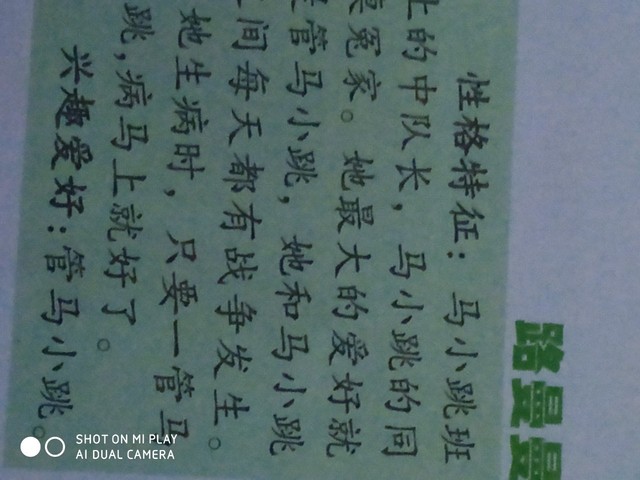 路曼曼
性格特征：马小跳班
上的中队长，马小跳的同
冤家。她最大的爱好就
管马小跳，她和马小跳
间每天都有战争发生。
她生病时，只要一管马
跳，病马上就好了。
兴趣爱好：管马小跳。
SHOT ON MI PLAY
AI DUAL CAMERA